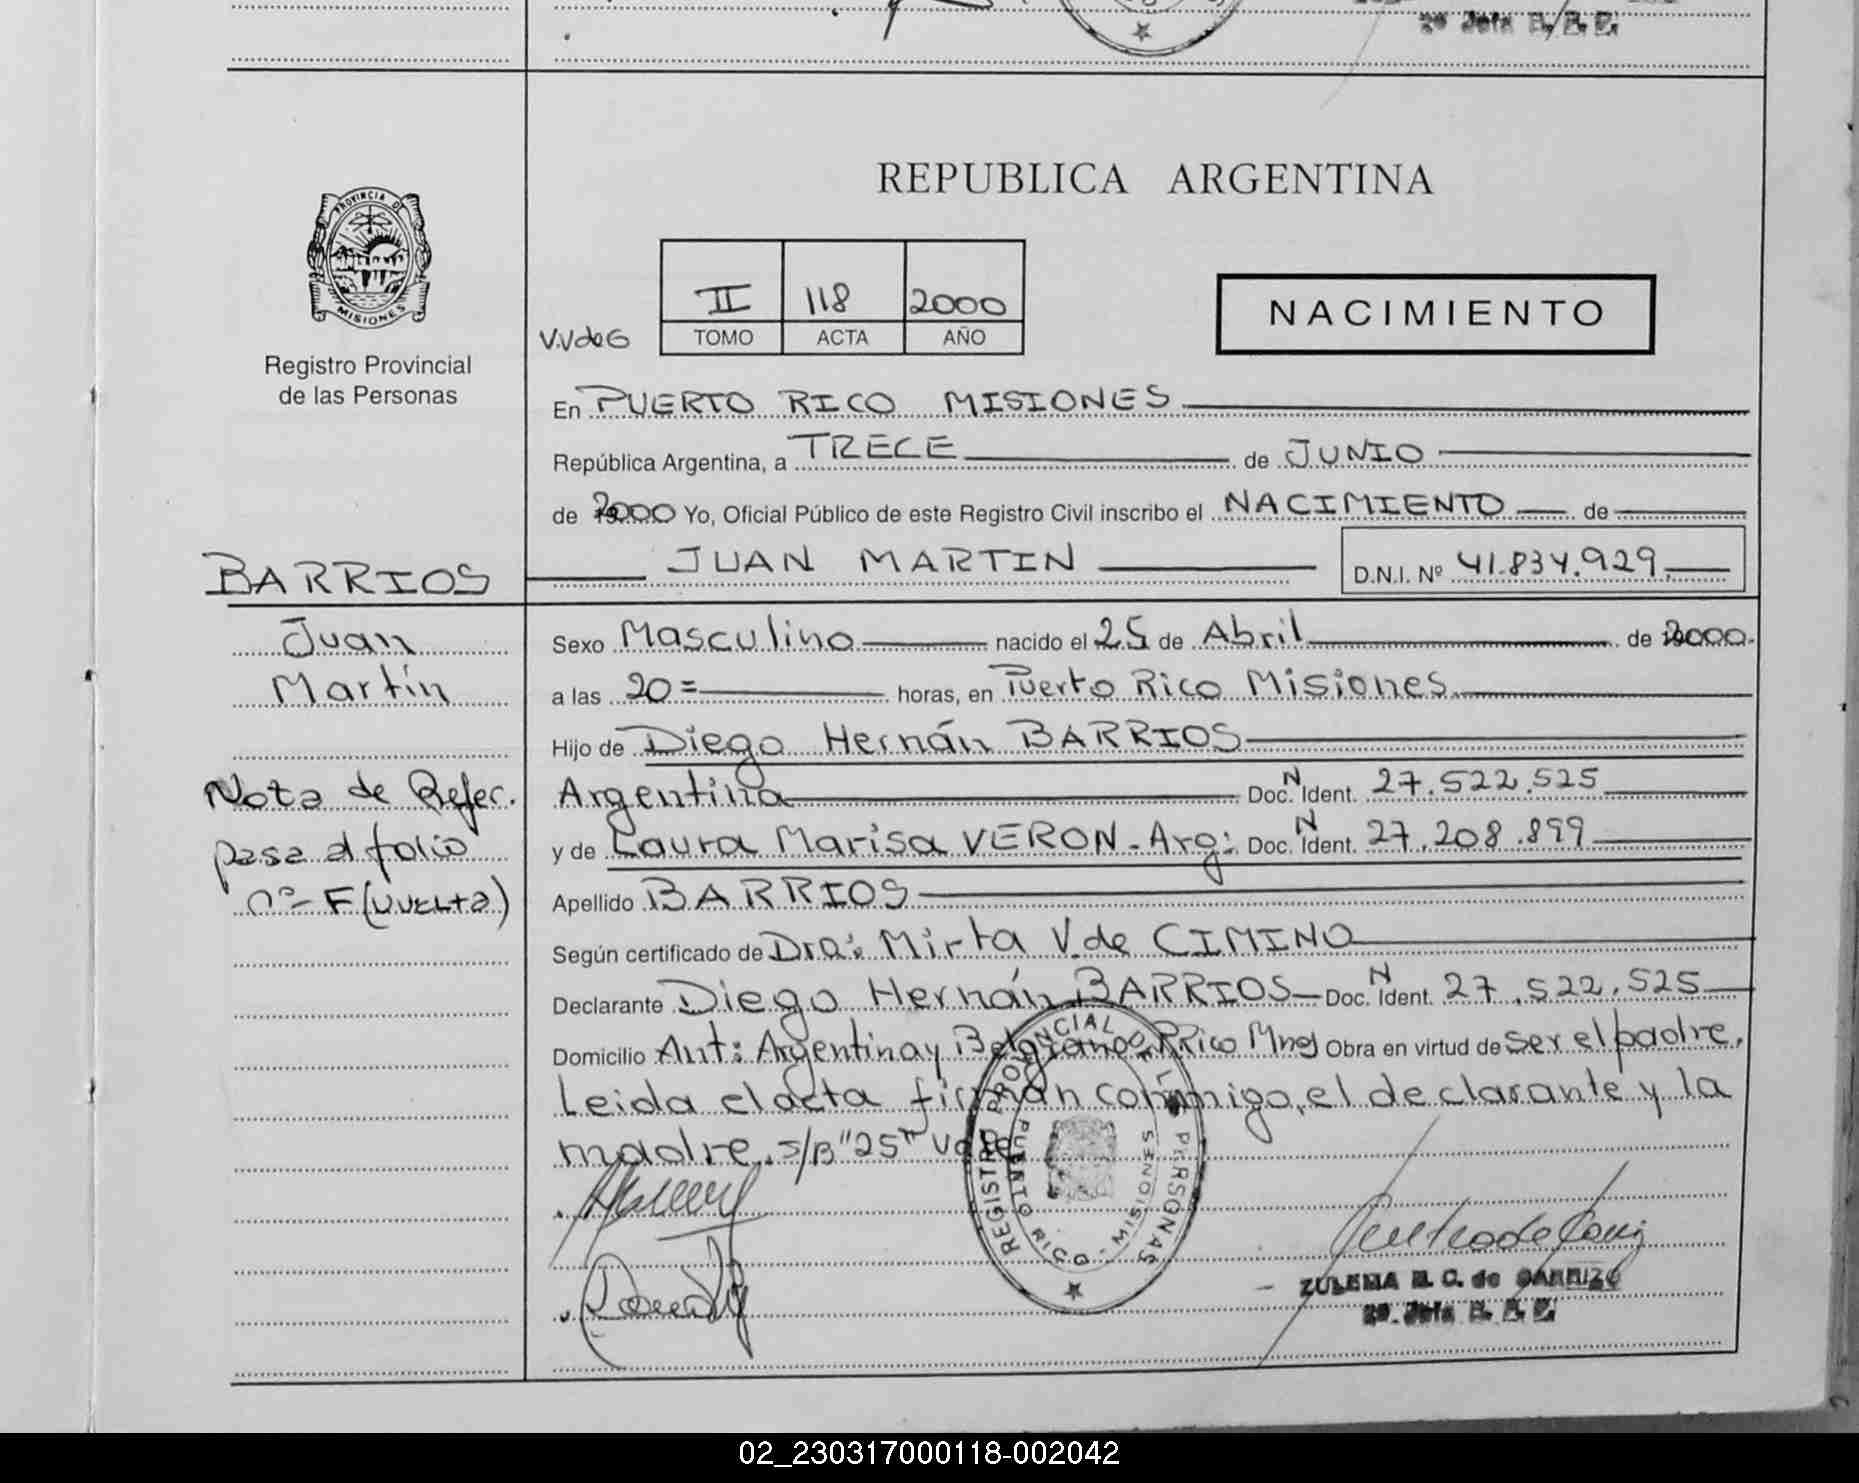 2º Jefe R. P. P.
REPUBLICA ARGENTINA
PROVINCIA DE
MISIONES
Registro Provincial
de las Personas
II 118 2000
TOMO ACTA AÑO
V.V de G
NACIMIENTO
En PUERTO RICO MISIONES
República Argentina, a TRECE de JUNIO
de 2000 Yo, Oficial Público de este Registro Civil inscribo el NACIMIENTO de
BARRIOS JUAN MARTIN D.N.I. Nº 41.834.929.
Juan
Martín
Sexo Masculino nacido el 25 de Abril de 2000.
a las 20= horas, en Puerto Rico Misiones
Hijo de Diego Hernán BARRIOS
Argentina Doc. N Ident. 27.522.525
y de Laura Marisa VERON - Arg: Doc. N Ident. 27.208.899
Nota de Refer.
pasa al folio
nº F (VUELTA)
Apellido BARRIOS
Según certificado de Dra: Mirta V. de CIMINO
Declarante Diego Hernán BARRIOS Doc. N Ident. 27.522.525
Domicilio Aut: Argentina y Belgrano P Rico Mnes Obra en virtud de ser el padre.
Leida el acta firman conmigo, el declarante y la
madre. s/B "25" Vale
REGISTRO PROVINCIAL DE LAS PERSONAS
PUERTO RICO - MISIONES
ZULEMA de
2º. Jefe R. P. P.
02_230317000118-002042